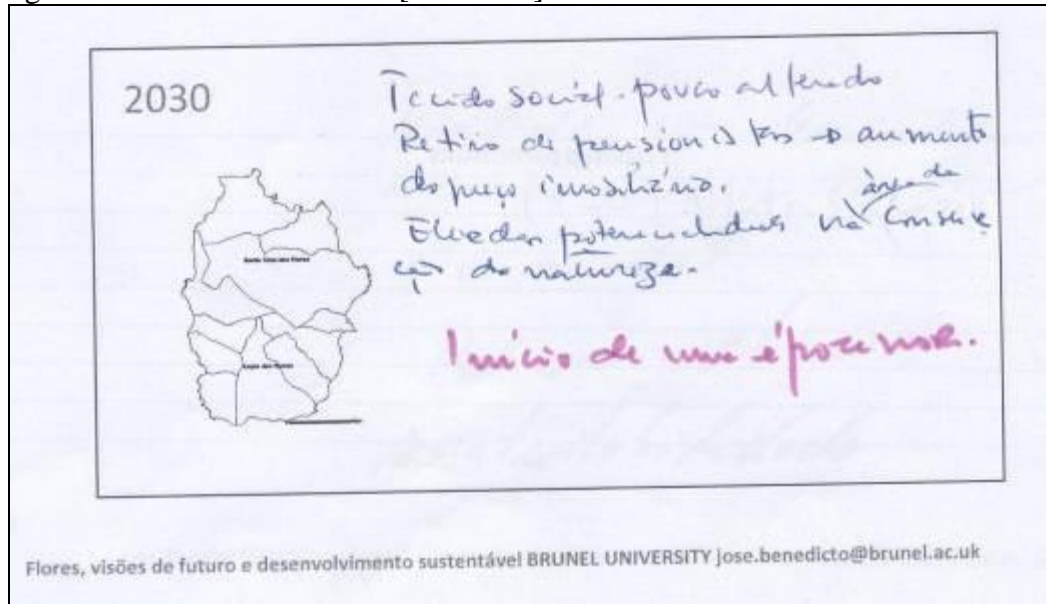 2030
Tecido social - pouco alterado
Retiro de pensionistas → aumento
do preço imobiliário.
Elevadas potencialidades na área da conserva
ção da natureza.
Santa Cruz das Flores
Lajes das Flores
Início de uma época nova.
Flores, visões de futuro e desenvolvimento sustentável BRUNEL UNIVERSITY jose.benedicto@brunel.ac.uk